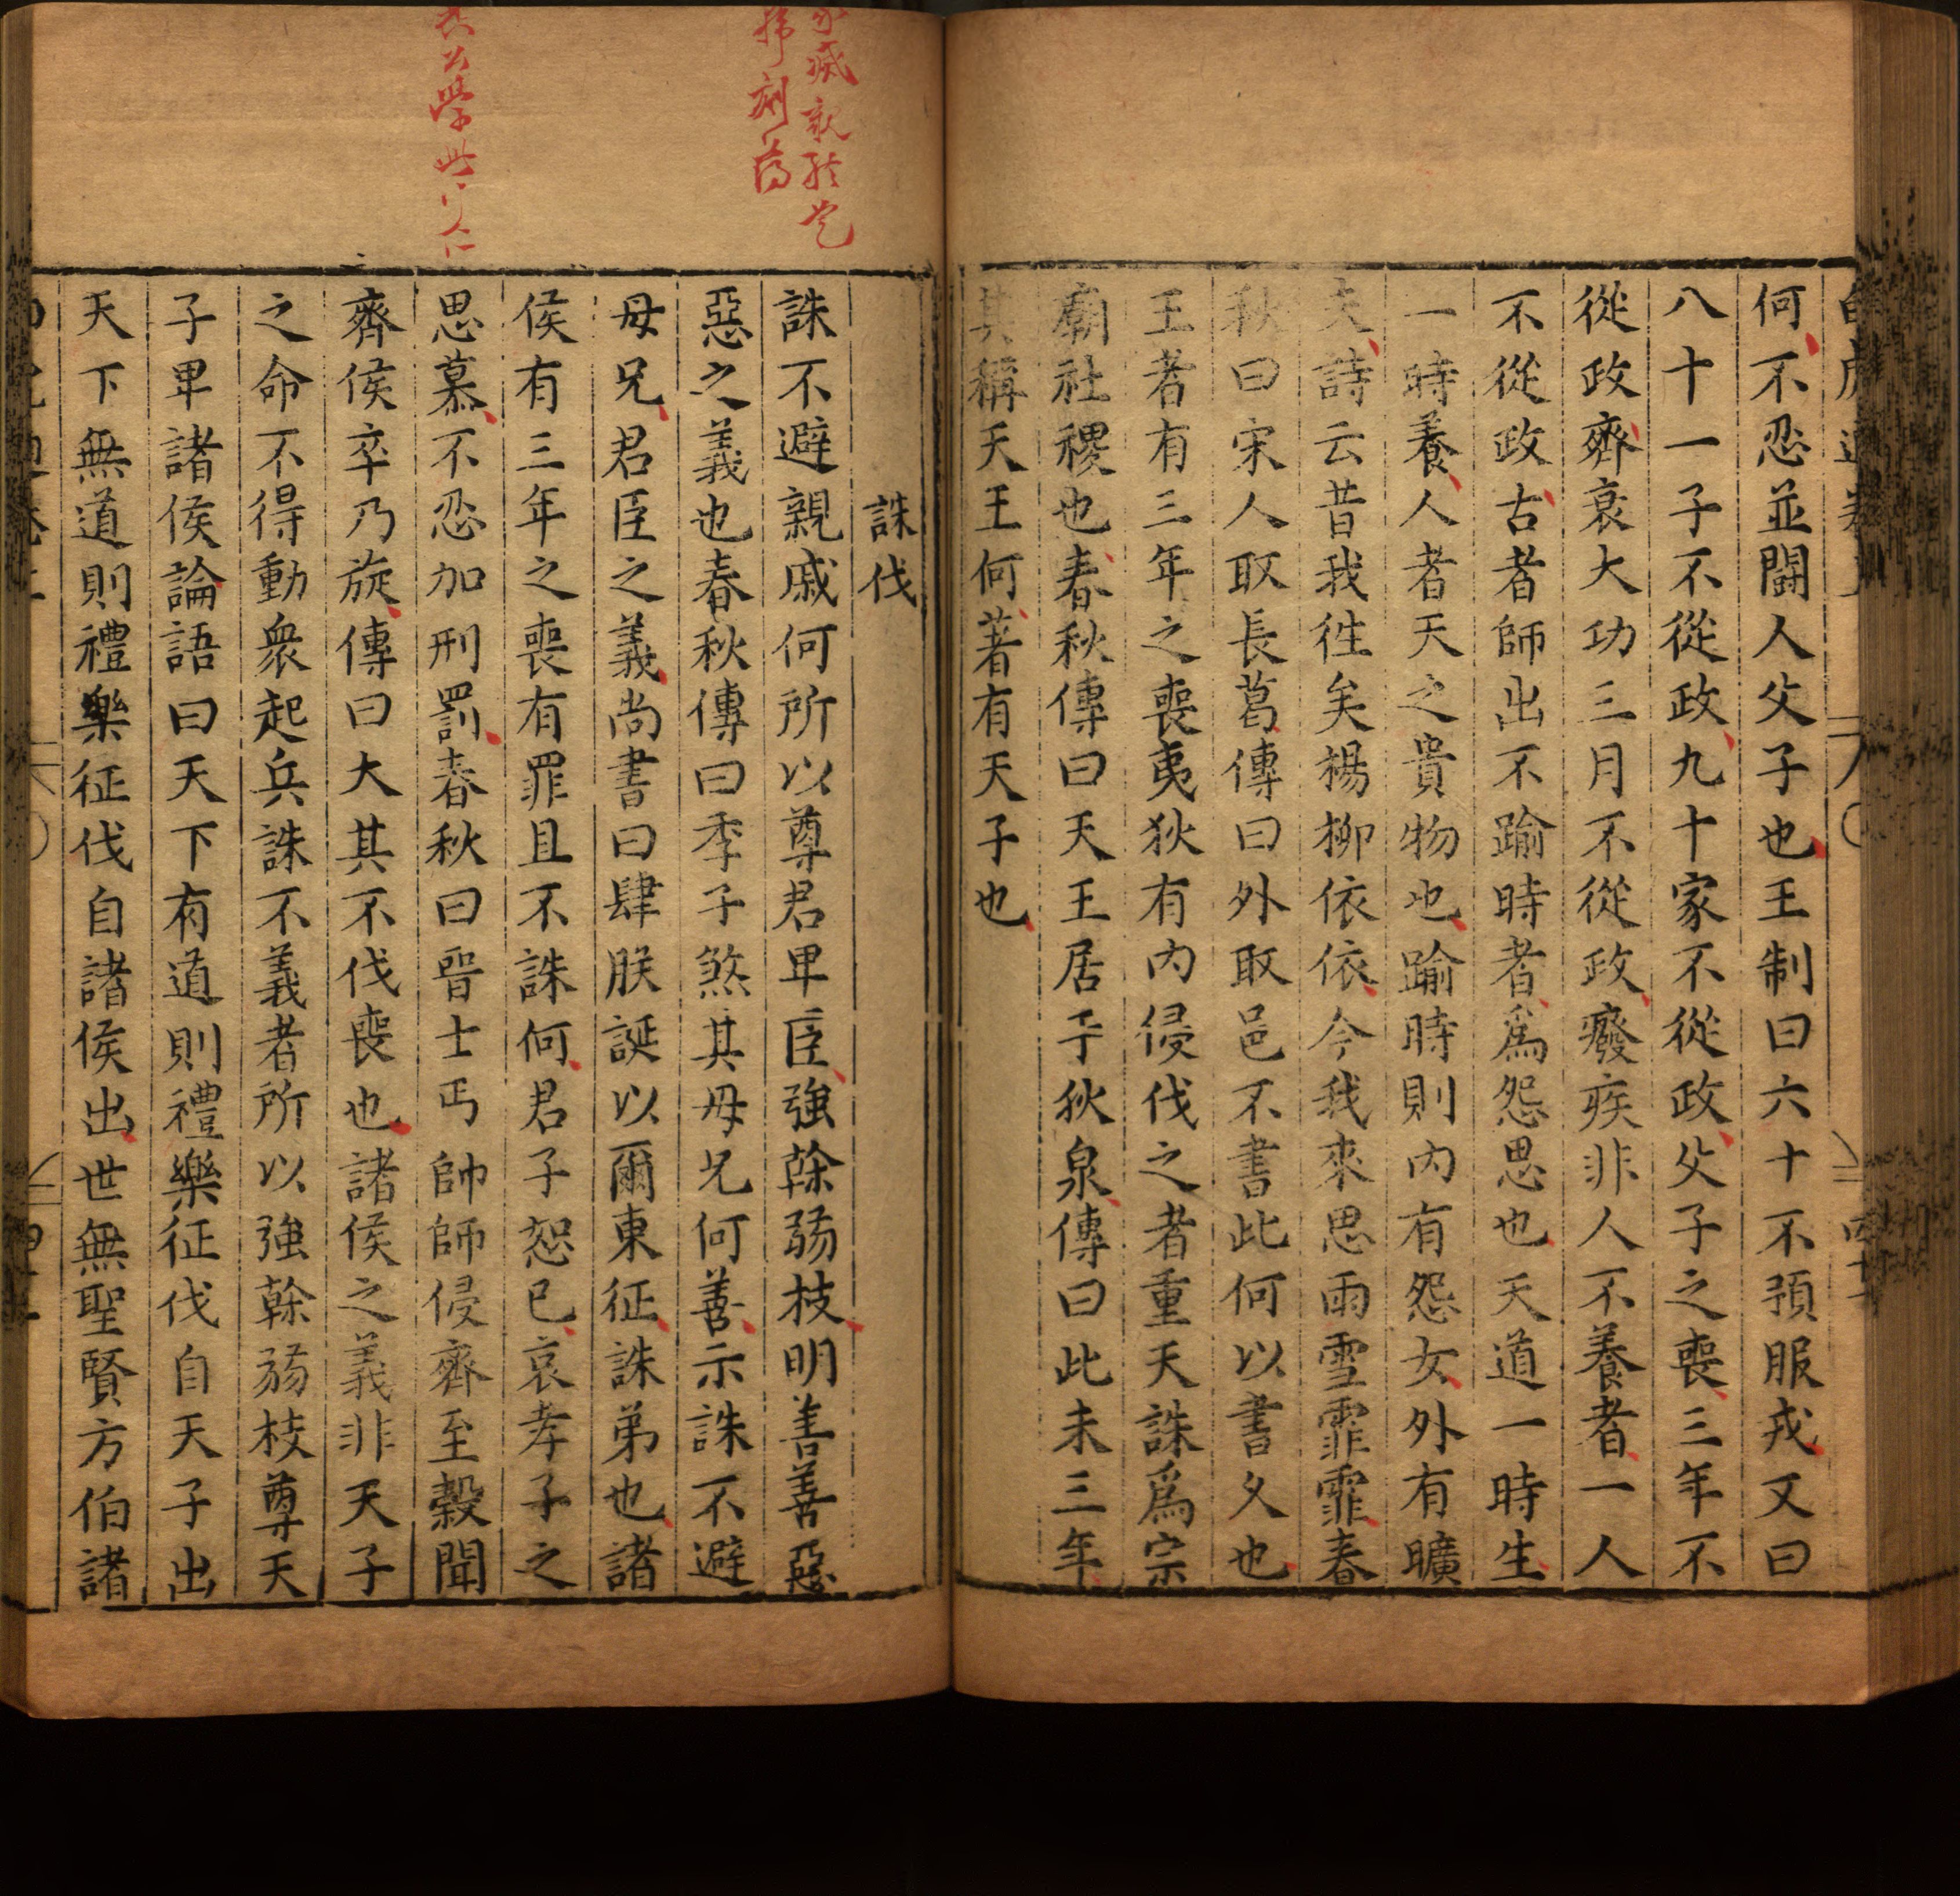 何不忍並鬪人父子也王制曰六十不預服戎又曰
八十一子不從政九十家不從政父子之喪三年不
從政齊衰大功三月不從政廢疾非人不養者一人
不從政古者師出不踰時者爲怨思也天道一時生
一時養人者天之貴物也踰時則内有怨女外有曠
夫詩云昔我徃矣楊柳依依今我來思雨雪霏霏春
秋曰宋人取長葛傳曰外取邑不書此何以書久也
王者有三年之喪夷狄有内侵伐之者重天誅爲宗
廟社稷也春秋傳曰天王居于狄泉傳曰此未三年
其稱天王何著有天子也
誅伐
誅不避親戚何所以尊君卑臣強榦弱枝明善善惡
惡之義也春秋傳曰季子煞其母兄何善示誅不避
母兄君臣之義尚書曰肆朕誕以爾東征誅弟也諸
侯有三年之喪有罪且不誅何君子恕已哀孝子之
思慕不忍加刑罰春秋曰晉士丐帥師侵齊至穀聞
齊侯卒乃旋傳曰大其不伐喪也諸侯之義非天子
之命不得動衆起兵誅不義者所以強榦弱枝尊天
子卑諸侯論語曰天下有道則禮樂征伐自天子出
天下無道則禮樂征伐自諸侯出世無聖賢方伯諸